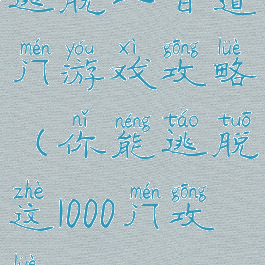 逃脱 道
mén yóu xì gōng lüè
门游戏攻略
nǐ néng táo tuō
(你能逃脱
zhè mén gōng
这1000门攻
lüè